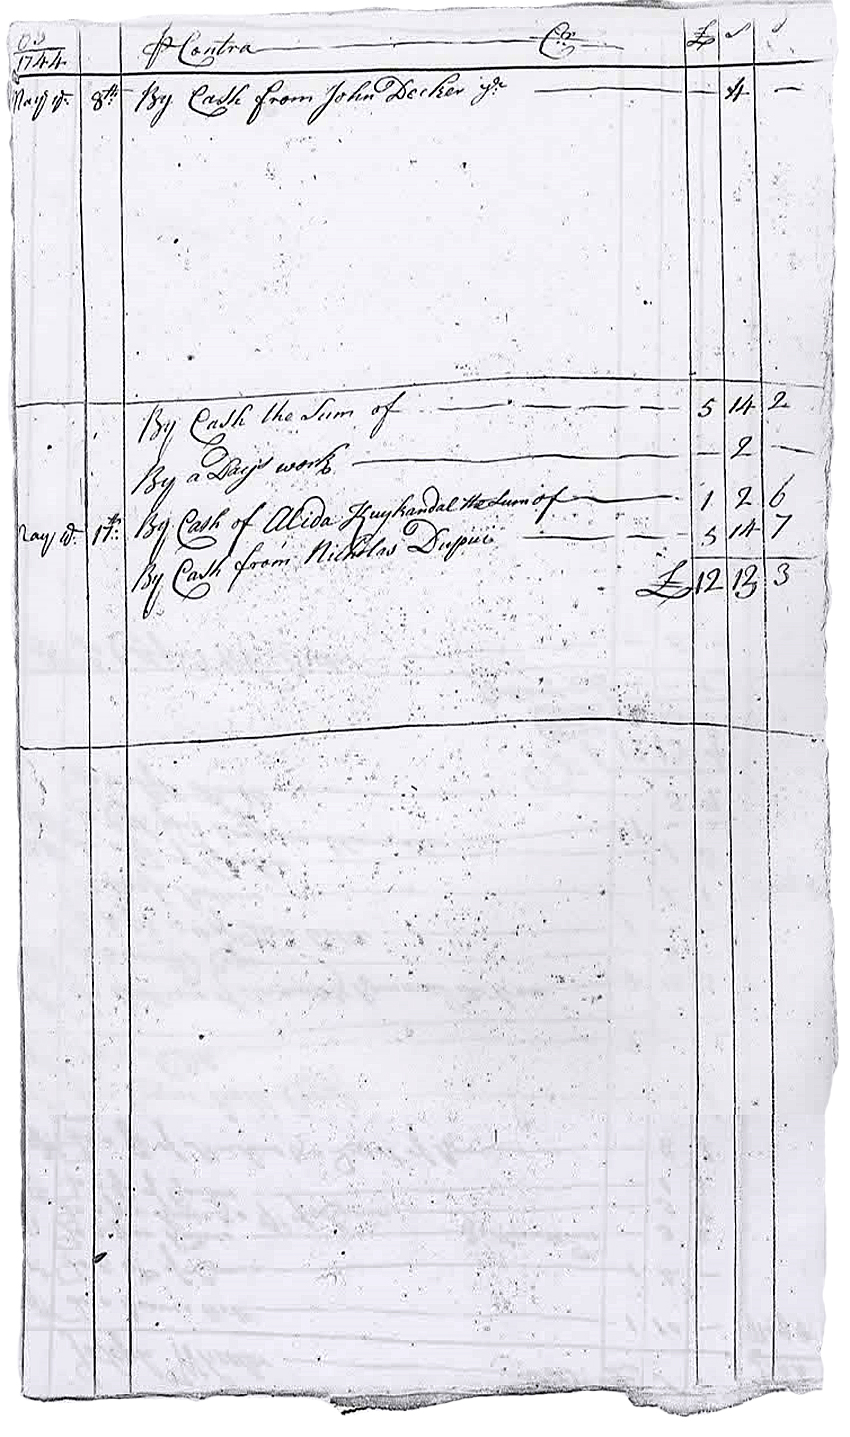 OS
1744 ⅌ Contra Cr. £ s
May ye 8th By Cash from John Decker jr 4 —
By Cash the Sum of 5 14 2
By a Days work — 2 —
By Cash of Alida Kuykandal the Sum of 1 2 6
May ye 17th By Cash from Nicholas Dupui 5 14 7
£ 12 13 3